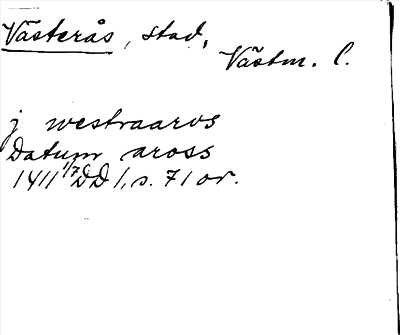 Västerås, stad,
Västm. l.
j westraarvs
Datum aross
1411 1/7 DD 1, s. 71 or.